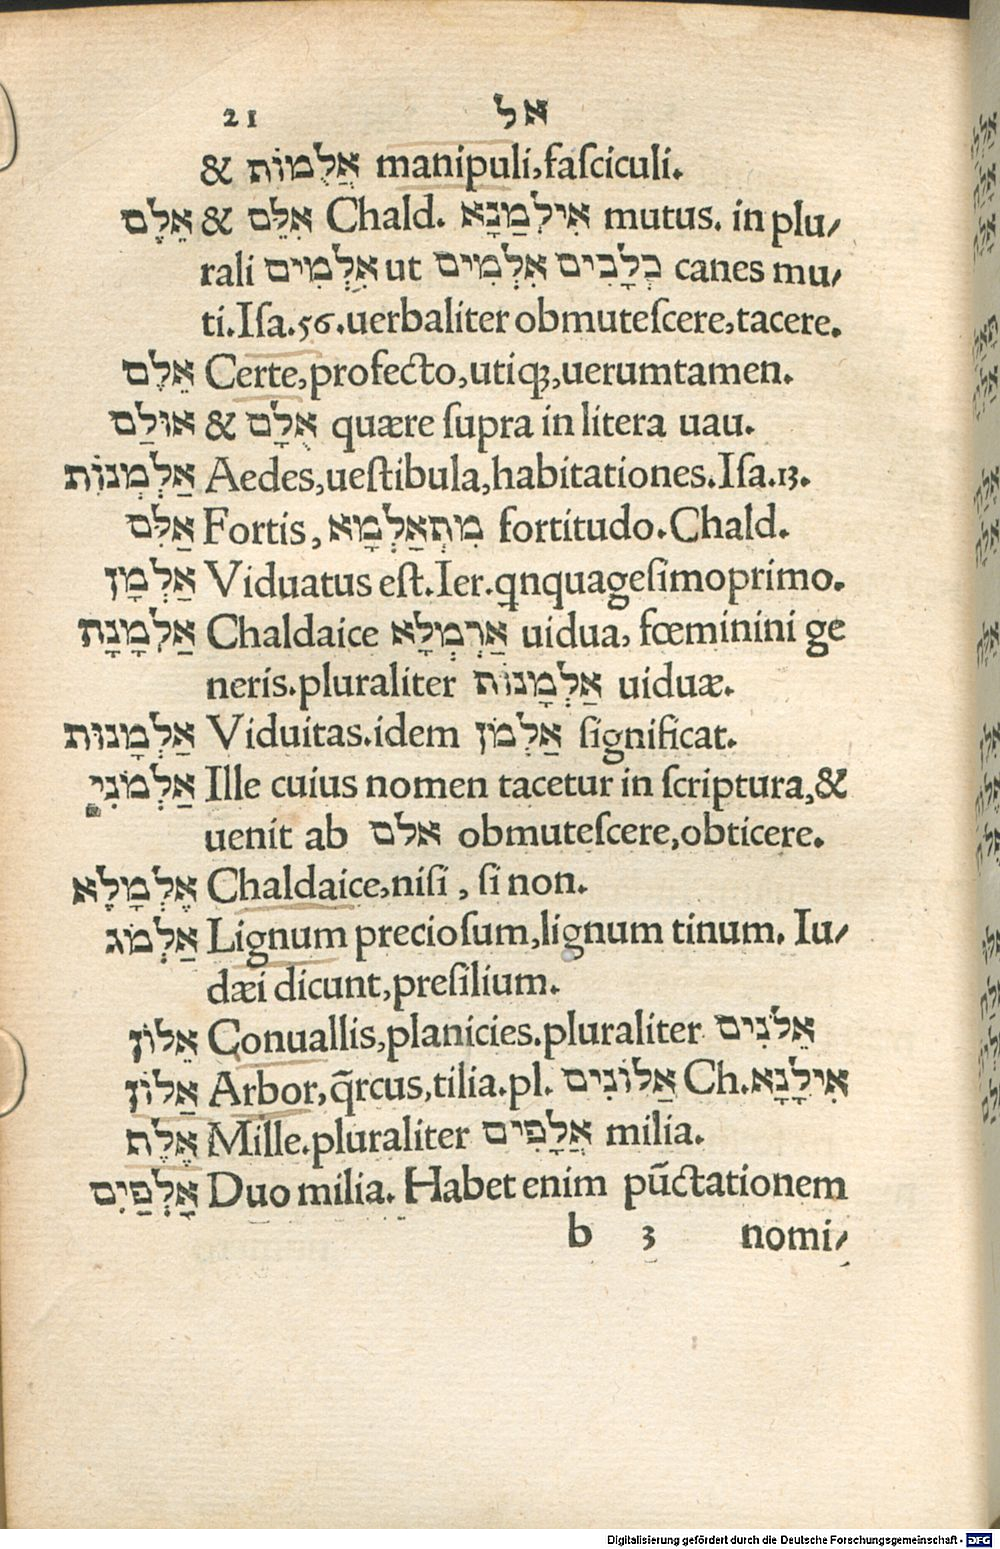 21 אל
& אֲלֻמּוֹת manipuli,faſciculi.
אֵלֶם & אִלֵּם Chald. אִילְמַנָא mutus. in plu/
rali אִלְּמִים ut כְּלָבִים אִלְּמִים canes mu/
ti.Iſa.56.uerbaliter obmuteſcere,tacere.
אֻלָם Certe,profecto,utiqꝫ,uerumtamen.
אוּלַם & אֻלָם quære ſupra in litera uau.
אַלְמְנוֹת Aedes,ueſtibula,habitationes.Iſa.13.
אַלִּם Fortis, מִתְאַלְמָא fortitudo.Chald.
אַלְמָן Viduatus eſt.Ier.qnquageſimoprimo.
אַלְמָנָה Chaldaice אַרְמְלָא uidua, fœminini ge
neris.pluraliter אַלְמָנוֹת uiduæ.
אַלְמָנוּת Viduitas.idem אַלְמֹן ſignificat.
אַלְמֹנִי Ille cuius nomen tacetur in ſcriptura,&
uenit ab אלם obmuteſcere,obticere.
אֶלְמָלֶא Chaldaice,niſi , ſi non.
אַלְמֹג Lignum precioſum,lignum tinum. Iu/
dæi dicunt,preſilium.
אֵלוֹן Conuallis,planicies.pluraliter אֵלֹנִים
אַלוֹן Arbor,q̄rcus,tilia.pl. אַלוֹנִים Ch.אִילָנָא
אֶלֶף Mille.pluraliter אֲלָפִים milia.
אַלְפַּיִם Duo milia. Habet enim pūctationem
b 3 nomi/
Digitalisierung gefördert durch die Deutsche Forschungsgemeinschaft - DFG